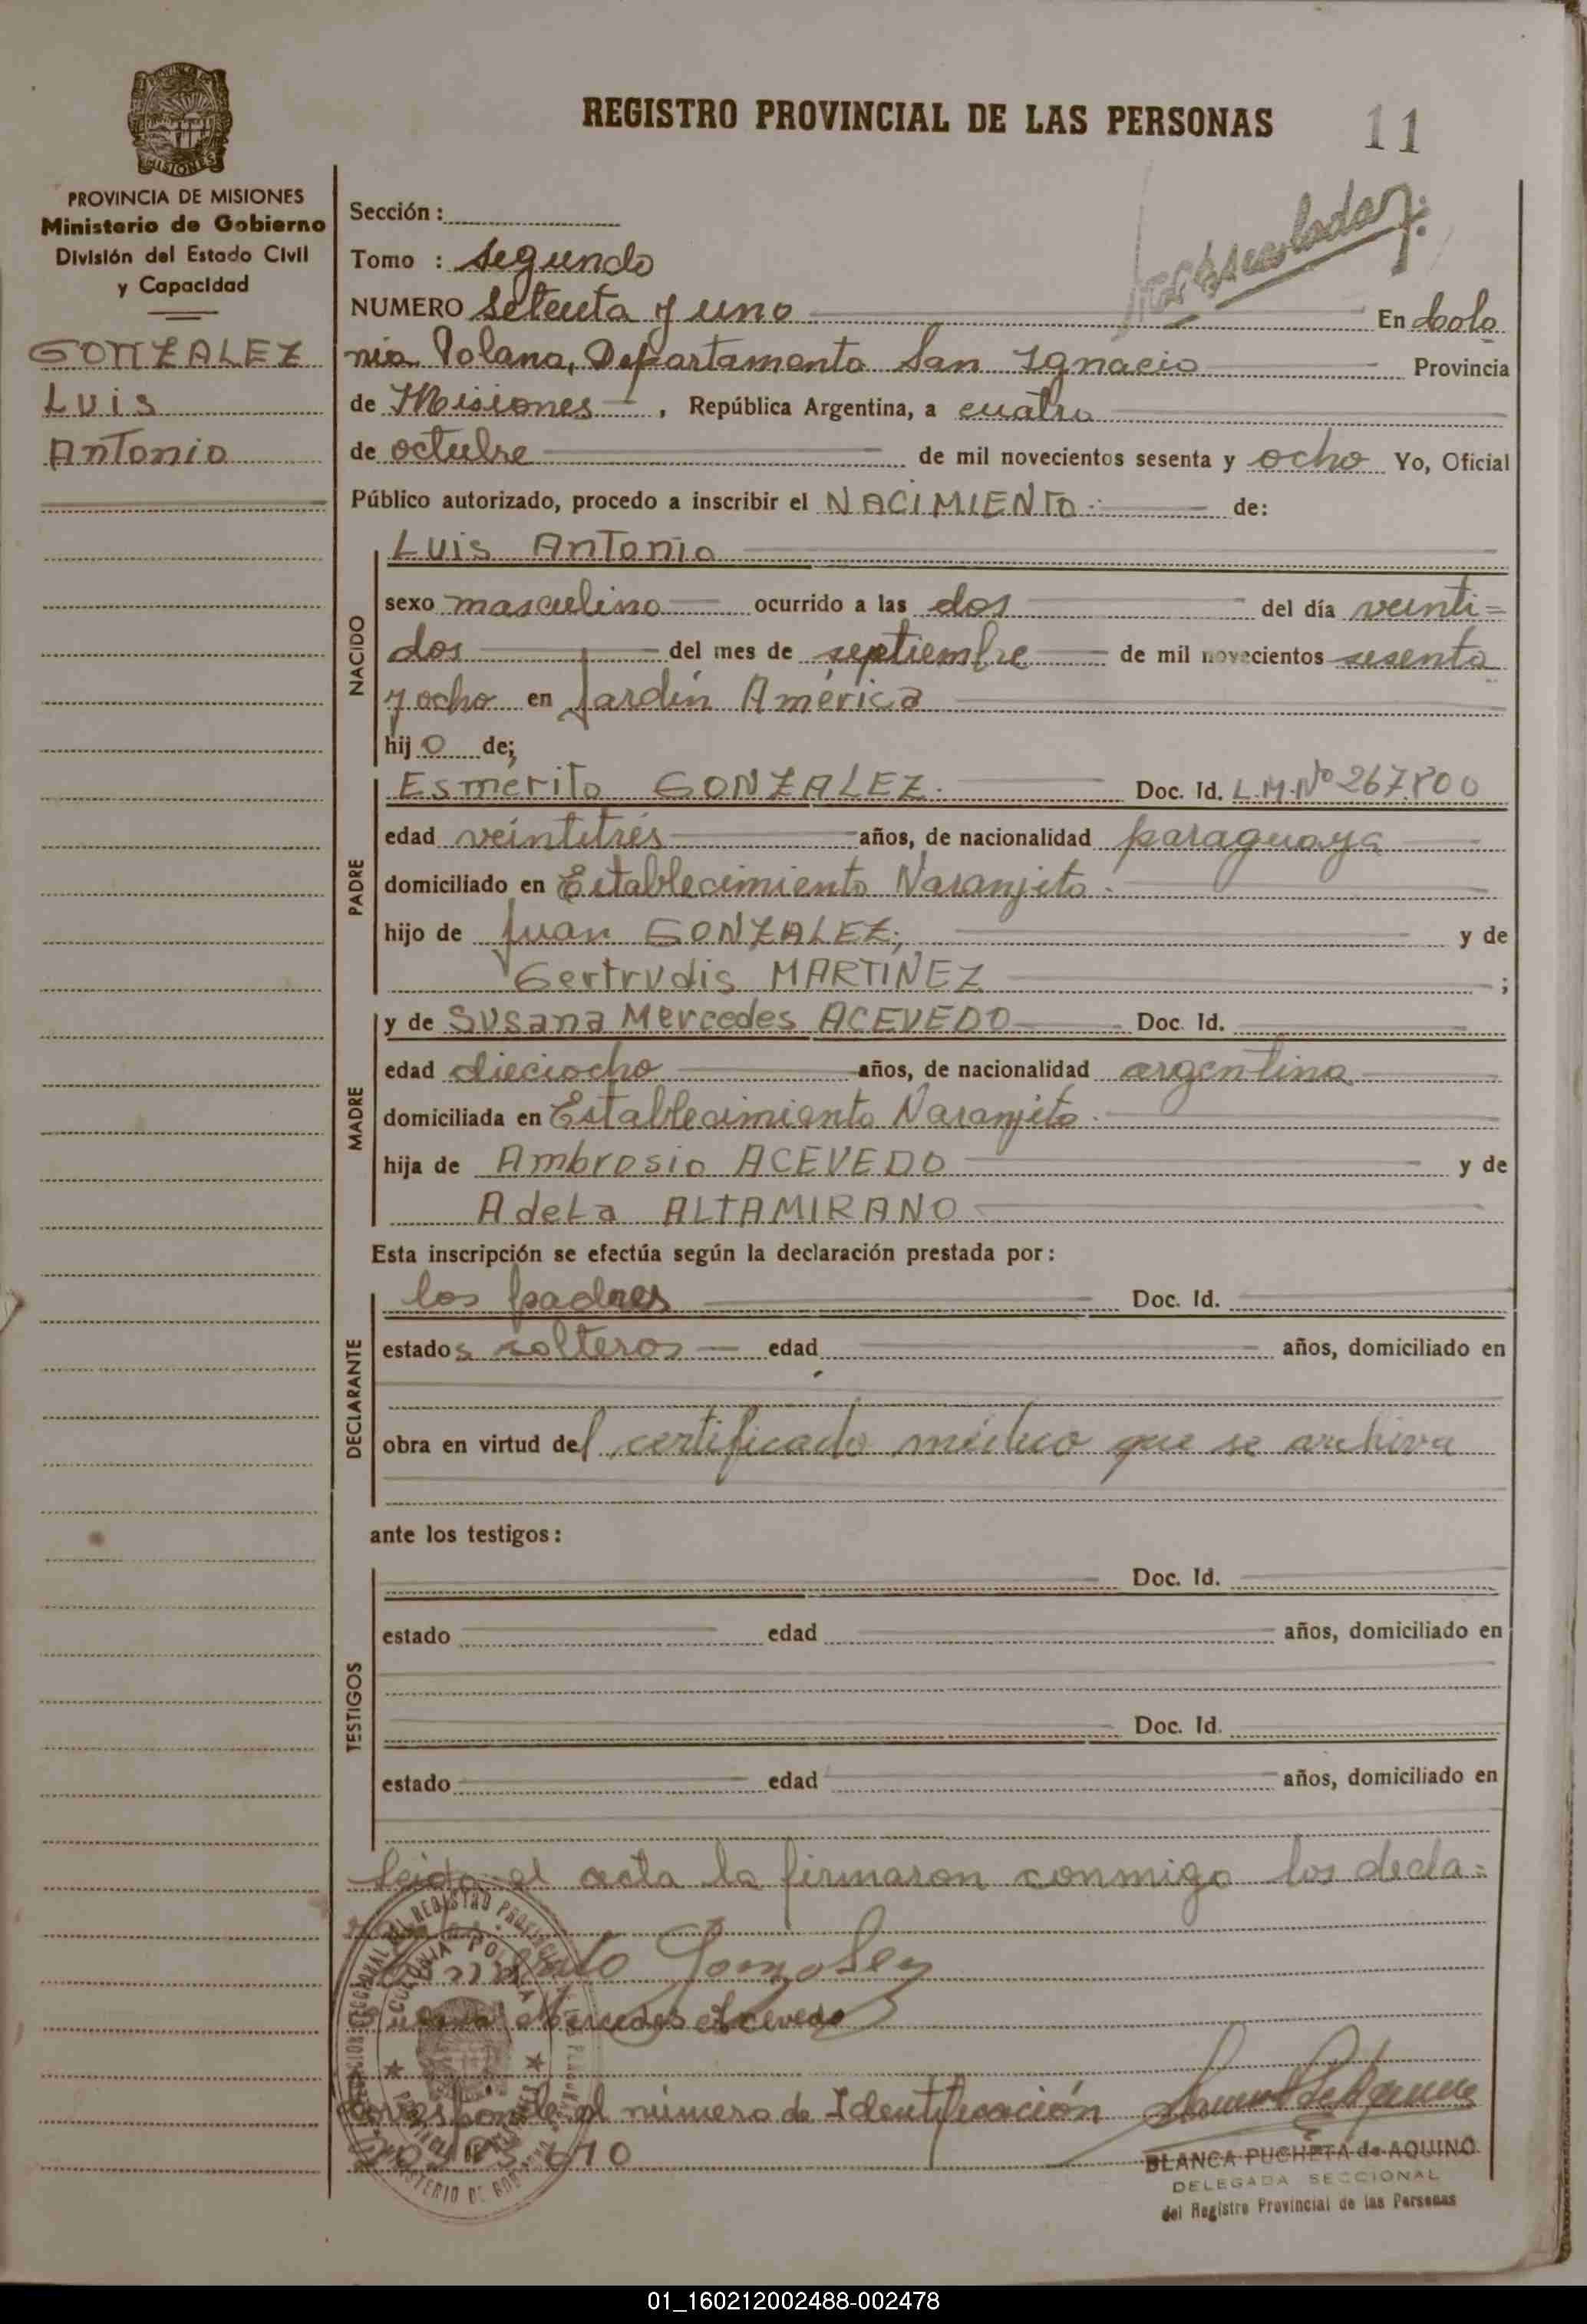 REGISTRO PROVINCIAL DE LAS PERSONAS 11
MISIONES
PROVINCIA DE MISIONES
Ministerio de Gobierno
División del Estado Civil
y Capacidad
GONZALEZ
Luis
Antonio
Sección :
Tomo : segundo
NUMERO setenta y uno En Colo
nia Polana, Departamento San Ignacio Provincia
de Misiones, República Argentina, a cuatro
de octubre de mil novecientos sesenta y ocho Yo, Oficial
Público autorizado, procedo a inscribir el NACIMIENTO.- de:
NACIDO
Luis Antonio
sexo masculino ocurrido a las dos del día veinti=
dos del mes de septiembre de mil novecientos sesenta
y ocho en Jardín América
hijo de;
PADRE
Esmerito GONZALEZ. Doc. Id. L.M.Nº 267.800
edad veintitrés años, de nacionalidad paraguaya
domiciliado en Establecimiento Naranjito.
hijo de Juan GONZALEZ, y de
Gertrudis MARTINEZ ;
MADRE
y de Susana Mercedes ACEVEDO Doc. Id.
edad dieciocho años, de nacionalidad argentina
domiciliada en Establecimiento Naranjito.
hija de Ambrosio ACEVEDO y de
Adela ALTAMIRANO
Esta inscripción se efectúa según la declaración prestada por:
DECLARANTE
los padres Doc. Id.
estados solteros edad años, domiciliado en
obra en virtud del certificado médico que se archiva
ante los testigos:
TESTIGOS
Doc. Id.
estado edad años, domiciliado en
Doc. Id.
estado edad años, domiciliado en
Leida el acta la firmaron conmigo los decla=
Gonzalez
Susana Mercedes Acevedo
Corresponde al número de Identificación
BLANCA PUCHETA de AQUINO
DELEGADA SECCIONAL
del Registro Provincial de las Personas
COLONIA POLANA
01_160212002488-002478